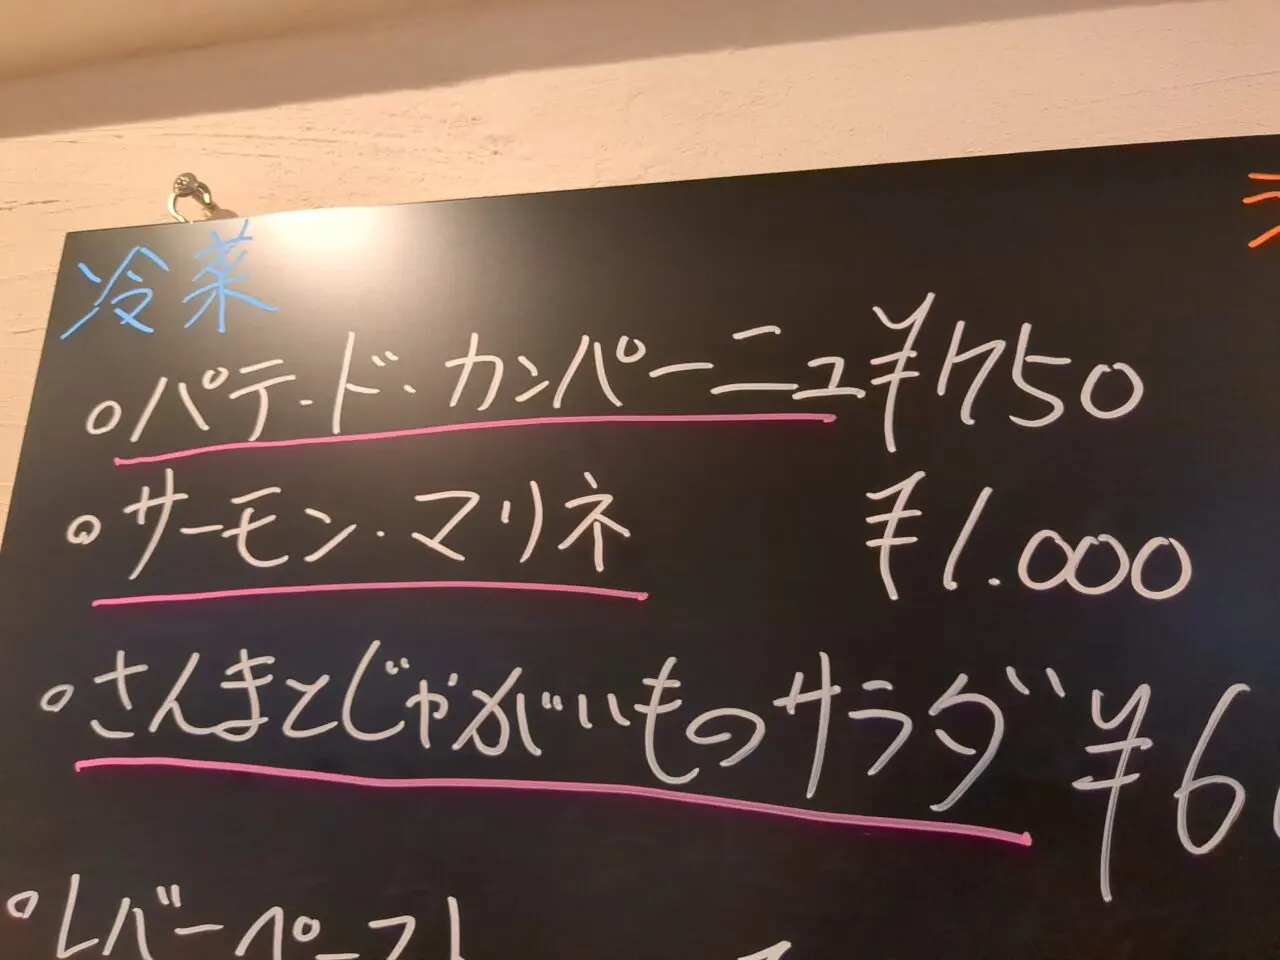 冷菜
○パテ・ド・カンパーニュ ¥750
○サーモン・マリネ ¥1.000
○さんまとじゃがいものサラダ ¥6
○レバーペースト